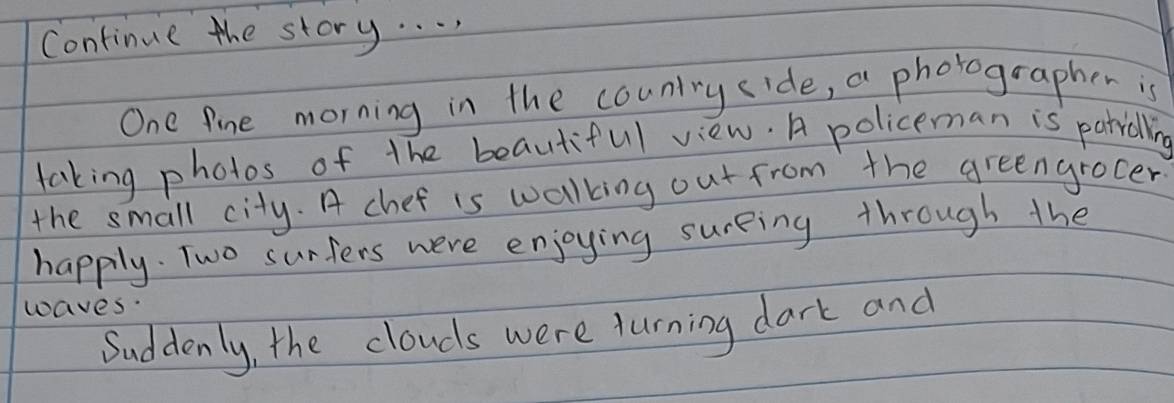 Continue the story....,
One fine morning in the countryside, a photographer is
taking photos of the beautiful view. A policeman is patrolling
the small city. A chef is walking out from the greengrocer
happily. Two surfers were enjoying surfing through the
waves.
Suddenly, the clouds were turning dark and